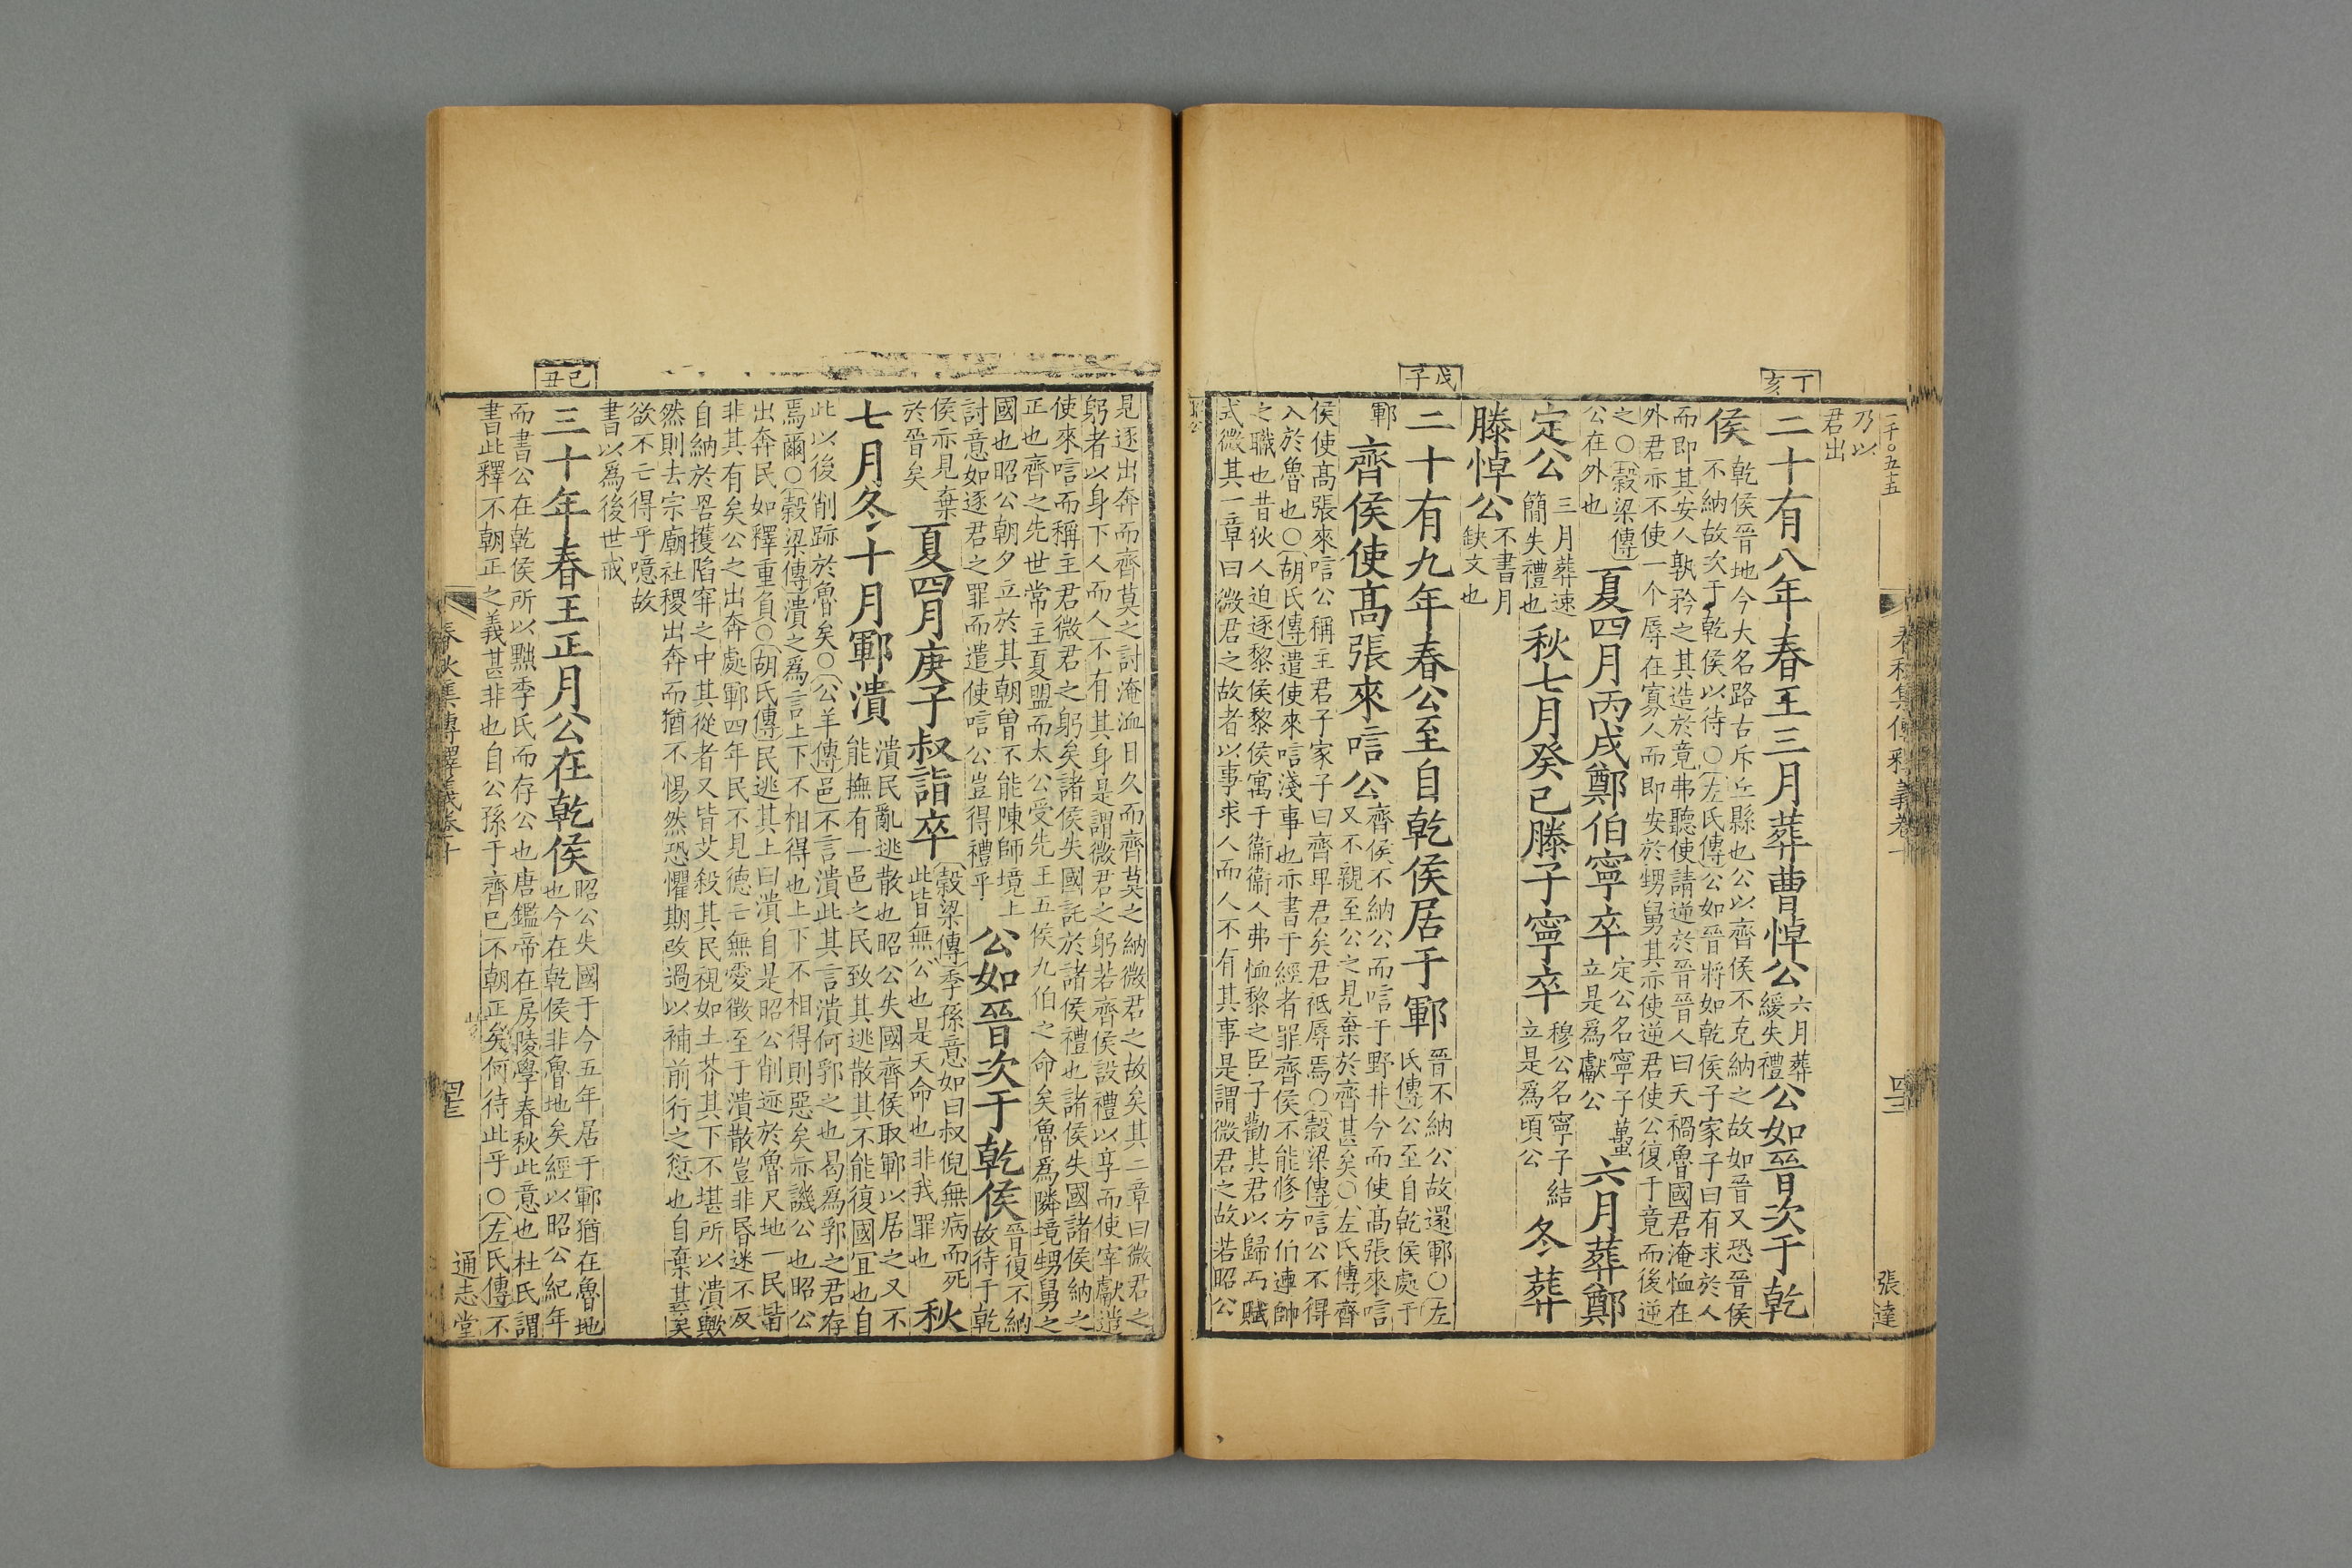 一千○五十五
春秋集傳釋義卷十
四十二
張達
乃以
君出
丁亥
二十有八年春王三月葬曹悼公
六月葬
緩失禮
公如晉次于乾
侯
乾侯晉地今大名路古斥丘縣也公以齊侯不克納之故如晉又恐晉侯
不納故次于乾侯以待○左氏傳公如晉將如乾侯子家子曰有求於人
而即其安人孰矜之其造於竟弗聽使請逆於晉晉人曰天禍魯國君淹恤在
外君亦不使一个辱在寡人而即安於甥舅其亦使逆君使公復于竟而後逆
之○穀梁傳
公在外也
夏四月丙戌鄭伯寧卒
定公名寧子蠆
立是爲獻公
六月葬鄭
定公
三月葬速
簡失禮也
秋七月癸巳滕子寧卒
穆公名寧子結
立是爲頃公
冬葬
滕悼公
不書月
缺文也
戊子
二十有九年春公至自乾侯居于鄆
晉不納公故還鄆○左
氏傳公至自乾侯處于
鄆
齊侯使高張來唁公
齊侯不納公而唁于野井今而使高張來唁
又不親至公之見棄於齊甚矣○左氏傳齊
侯使高張來唁公稱主君子家子曰齊卑君矣君祗辱焉○穀梁傳唁公不得
入於魯也○胡氏傳遣使來唁淺事也亦書于經者罪齊侯不能修方伯連帥
之職也昔狄人迫逐黎侯黎侯寓于衞衞人弗恤黎之臣子勸其君以歸而賦
式微其一章曰微君之故者以事求人而人不有其事是謂微君之故若昭公
見逐出奔而齊莫之討淹恤日久而齊莫之納微君之故矣其二章曰微君之
躬者以身下人而人不有其身是謂微君之躬若齊侯設禮以享而使宰獻遣
使來唁而稱主君微君之躬矣諸侯失國託於諸侯禮也諸侯失國諸侯納之
正也齊之先世常主夏盟而太公受先王五侯九伯之命矣魯爲隣境甥舅之
國也昭公朝夕立於其朝曾不能陳師境上
討意如逐君之罪而遣使唁公豈得禮乎
公如晉次于乾侯
晉復不納
故待于乾
侯亦見棄
於晉矣
夏四月庚子叔詣卒
穀梁傳季孫意如曰叔倪無病而死
此皆無公也是天命也非我罪也
秋
七月冬十月鄆潰
潰民亂逃散也昭公失國齊侯取鄆以居之又不
能撫有一邑之民致其逃散其不能復國宜也自
此以後削跡於魯矣○公羊傳邑不言潰此其言潰何郛之也曷爲郛之君存
焉爾○穀梁傳潰之爲言上下不相得也上下不相得則惡矣亦譏公也昭公
出奔民如釋重負○胡氏傳民逃其上曰潰自是昭公削迹於魯尺地一民皆
非其有矣公之出奔處鄆四年民不見德亡無愛徵至于潰散豈非昬迷不反
自納於罟擭陷穽之中其從者又皆艾殺其民視如土芥其下不堪所以潰歟
然則去宗廟社稷出奔而猶不惕然恐懼期改過以補前行之愆也自棄甚矣
欲不亡得乎噫故
書以爲後世戒
己丑
三十年春王正月公在乾侯
昭公失國于今五年居于鄆猶在魯地
也今在乾侯非魯地矣經以昭公紀年
而書公在乾侯所以黜季氏而存公也唐鑑帝在房陵學春秋此意也杜氏謂
書此釋不朝正之義甚非也自公孫于齊已不朝正矣何待此乎○左氏傳不
春秋集傳釋義卷十
四十三
通志堂